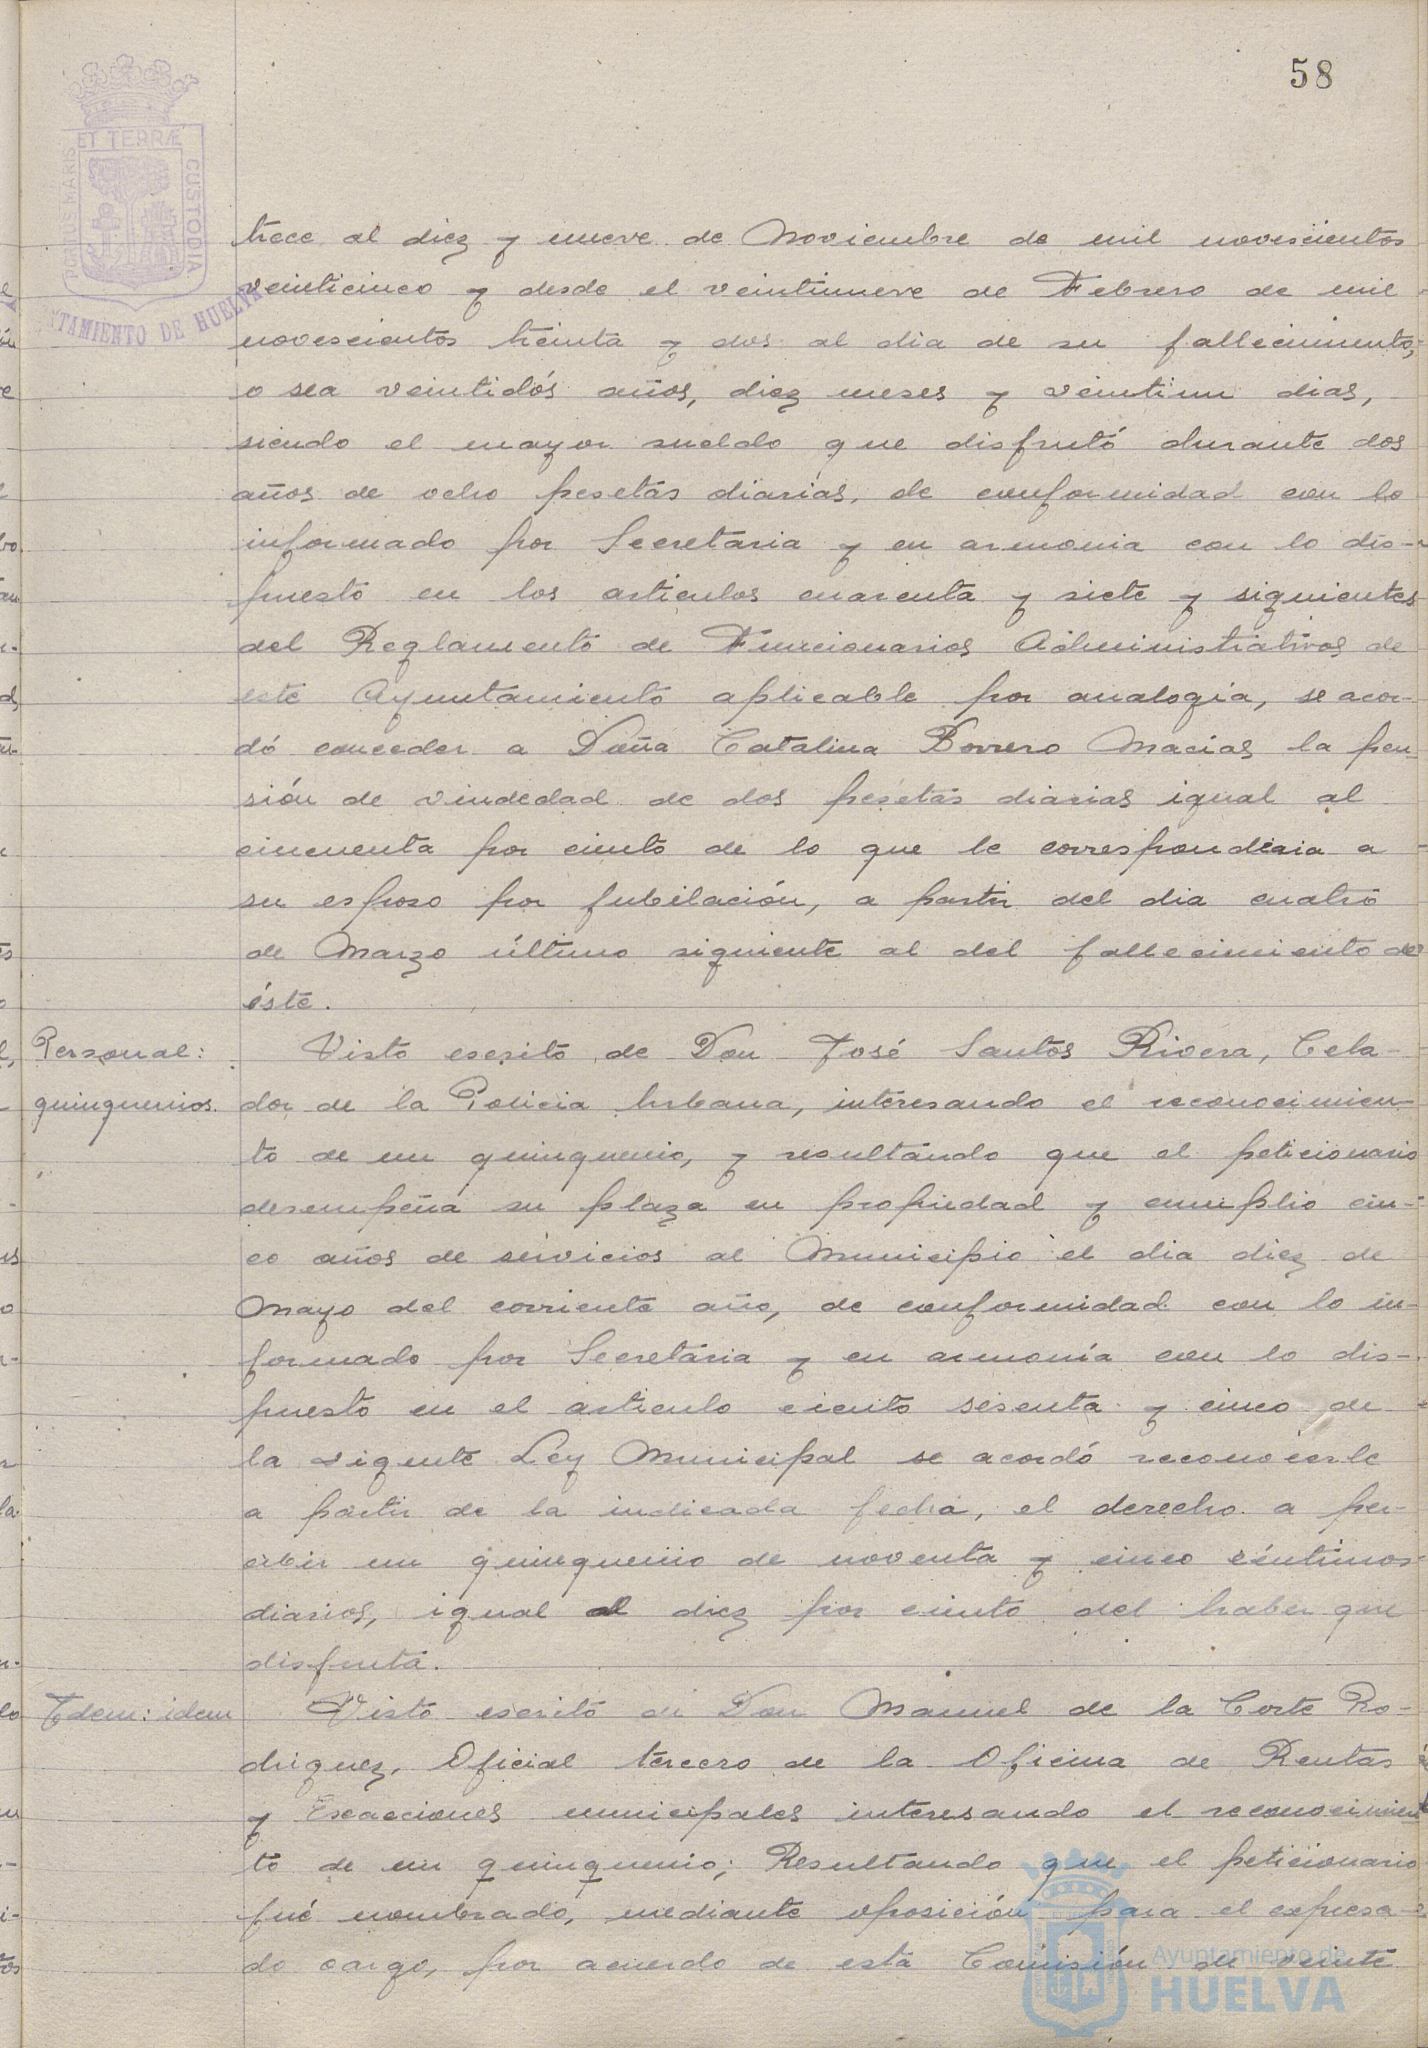 58
PORTUS MARIS
ET TERRÆ
CUSTODIA
TAMIENTO DE HUELVA
trece al diez y nueve de Noviembre de mil novescientos
veinticinco y desde el veintinueve de Febrero de mil
novescientos treinta y dos al dia de su fallecimiento,
o sea veintidós años, diez meses y veintiun dias,
siendo el mayor sueldo que disfrutó durante dos
años de ocho pesetas diarias, de conformidad con lo
informado por Secretaria y en armonia con lo dis-
puesto en los articulos cuarenta y siete y siguientes
del Reglamento de Funcionarios Administrativos de
este Ayuntamiento aplicable por analogia, se acor-
dó conceder a Doña Catalina Borrero Macias la pen-
sión de viudedad de dos pesetas diarias igual al
cincuenta por ciento de lo que le corresponderia a
su esposo por jubilación, a partir del dia cuatro
de Marzo último siguiente al del fallecimiento de
éste.
Personal:
quinquenios.
Visto escrito de Don José Santos Rivera, Cela-
dor de la Policia Urbana, interesando el reconocimien-
to de un quinquenio, y resultando que el peticionario
desempeña su plaza en propiedad y cumplio cin-
co años de servicios al Municipio el dia diez de
Mayo del corriente año, de conformidad con lo in-
formado por Secretaria y en armonía con lo dis-
puesto en el articulo ciento sesenta y cinco de
la vigente Ley Municipal se acordó reconocerle
a partir de la indicada fecha, el derecho a per-
cibir un quinquenio de noventa y cinco céntimos
diarios, igual al diez por ciento del haber que
disfruta.
Idem: idem
Visto escrito de Don Manuel de la Corte Ro-
driguez, Oficial tercero de la Oficina de Rentas
y Exacciones municipales interesando el reconocimien
to de un quinquenio; Resultando que el peticionario
fué nombrado, mediante oposición para el expresa-
do cargo, por acuerdo de esta Comisión de veinte
Ayuntamiento de
HUELVA